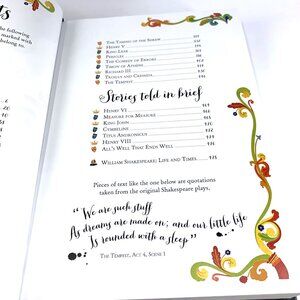 ts
the following
marked with
belong to.
The Taming of the Shrew
Henry V
King Lear
Pericles
The Comedy of Errors
Timon of Athens
Richard III
Troilus and Cressida
The Tempest
Stories told in brief
Henry VI
Measure for Measure
King John
Cymbeline
Titus Andronicus
Henry VIII
All's Well That Ends Well
William Shakespeare: Life and Times
Pieces of text like the one below are quotations
taken from the original Shakespeare plays,
"We are such stuff
As dreams are made on; and our little life
Is rounded with a sleep"
The Tempest, Act 4, Scene 1